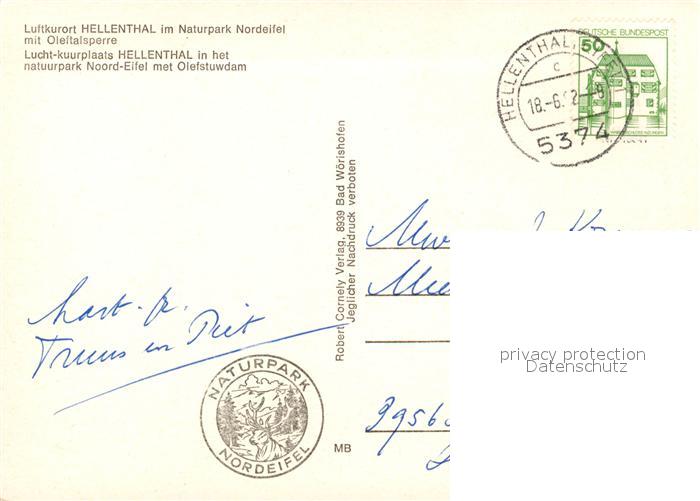 Luftkurort HELLENTHAL im Naturpark Nordeifel
mit Oleftalsperre
Lucht-kuurplaats HELLENTHAL in het
natuurpark Noord-Eifel met Olefstuwdam
DEUTSCHE BUNDESPOST
50
HELLENTHAL, EIFEL
c
18.-6. 2-18
5374
Robert Cornely Verlag, 8939 Bad Wörishofen
Jeglicher Nachdruck verboten
hart. gr.
Truus en Piet
NATURPARK
NORDEIFEL
MB
privacy protection
Datenschutz